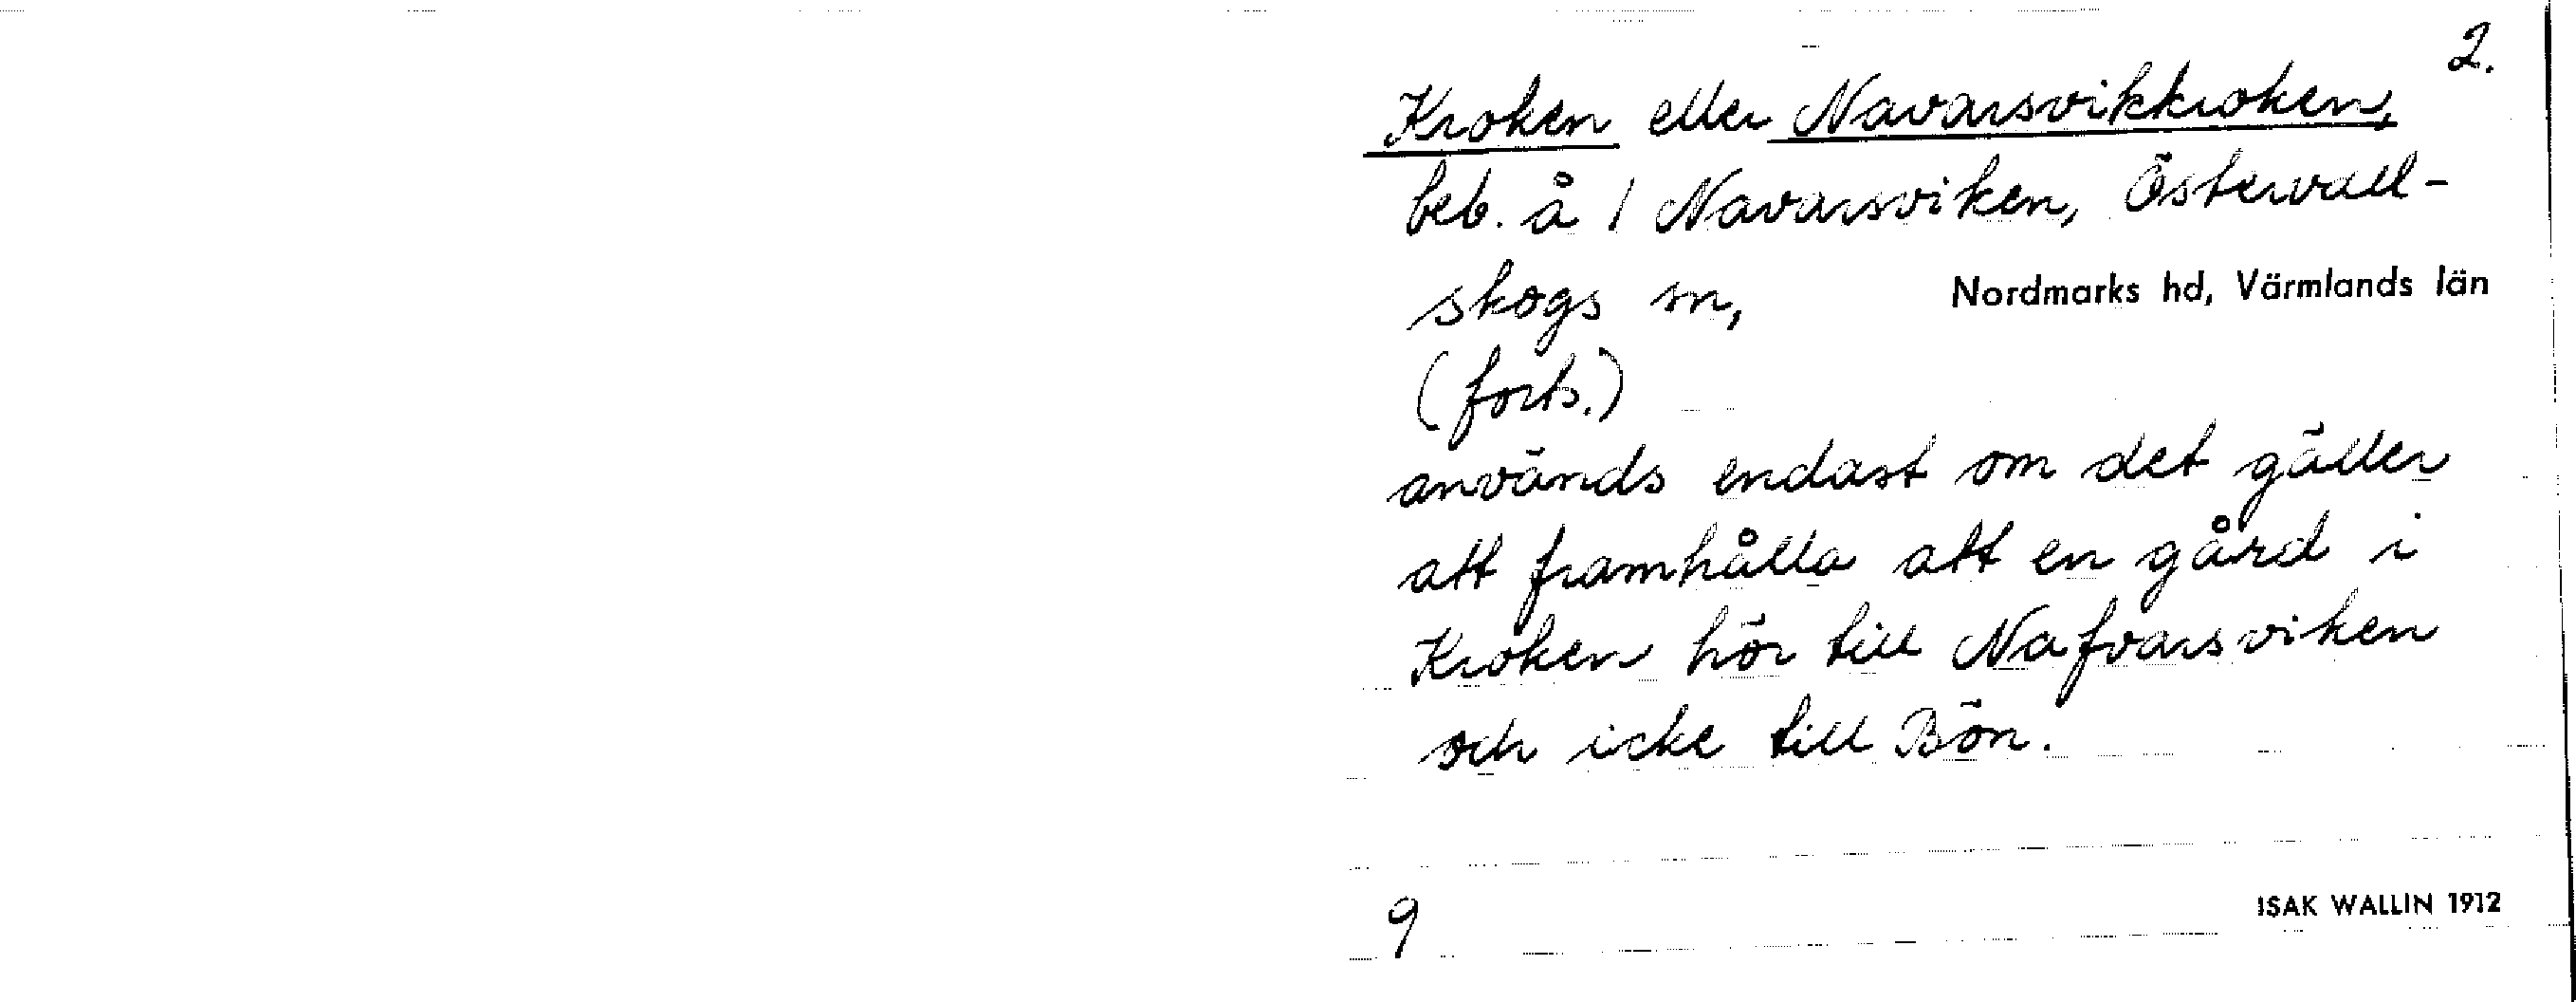 2.
Kroken eller Navarsvikkroken,
beb. å 1 Navarsviken, Östervall-
skogs sn,
Nordmarks hd, Värmlands län
(forts.)
används endast om det gäller
att framhålla att en gård i
Kroken hör till Nafvarsviken
och icke till Bön.
9
ISAK WALLIN 1912